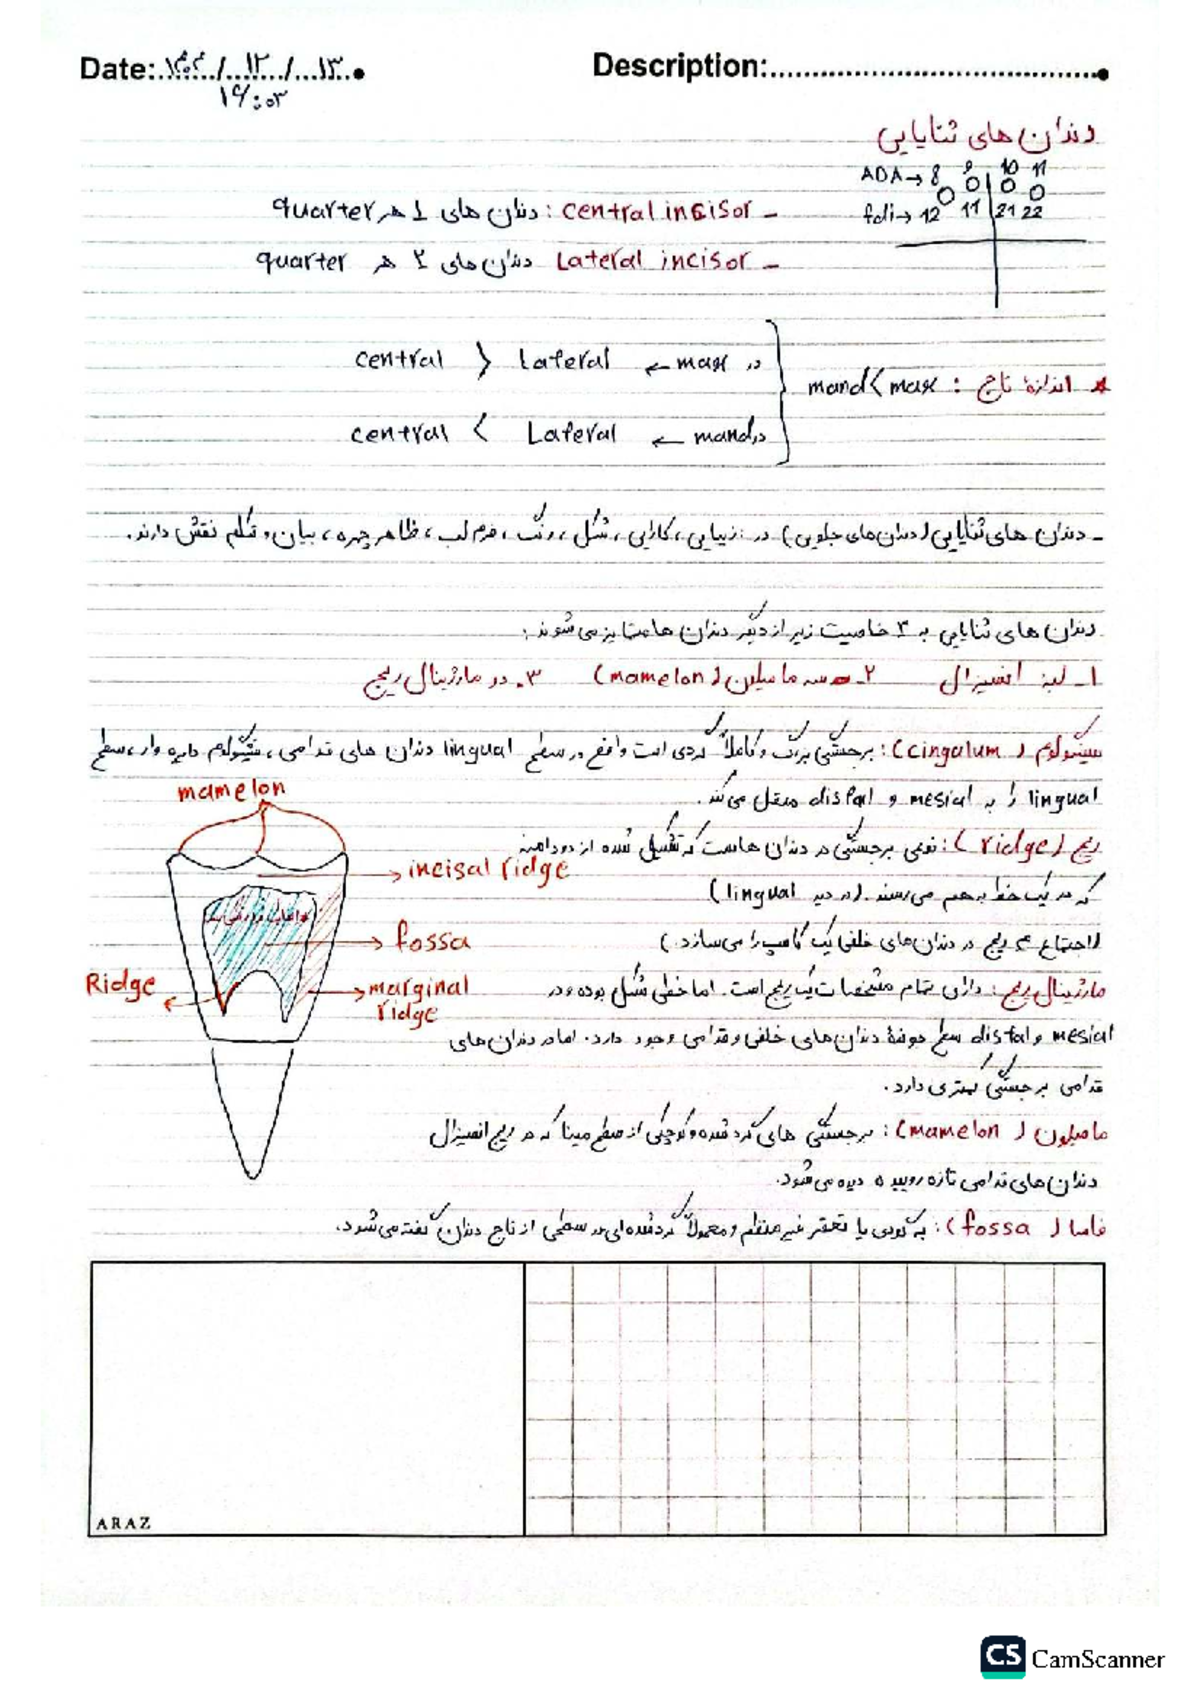 Date: ۱۴۰۲/۱۲/۱۳
Description:
۱۶:۰۳
دندان های ثنایایی
ADA → 8 9 10 11
fdi → 12 11 21 22
- central incisor : دندان های 1 هر quarter
- Lateral incisor دندان های 2 هر quarter
* اندازهٔ تاج : mand < max
در max ← central > Lateral
در mand ← central < Lateral
- دندان های ثنایایی (دندان های جلویی) در : زیبایی ، کارایی ، شکل ، رنگ ، فرم لب ، ظاهر چهره ، بیان و تکلم نقش دارند.
دندان های ثنایایی به ۳ خاصیت زیر از دیگر دندان ها متمایز می شوند :
۱- لبه انسیزال ۲- سه مامیلون (mamelon) ۳- دو مارژینال ریج
سینگولوم (cingalum) : برجستگی بزرگ و کاملاً گردی است واقع در سطح lingual دندان های قدامی ، سینگولوم دایره وار ، سطح
lingual را به mesial و distal منتقل می کند.
ریج (ridge) : نوعی برجستگی در دندان هاست که تشکیل شده از دو دامنه
که در یک خط به هم می رسند. (در دید lingual)
(اجتماع ۴ ریج در دندان های خلفی یک کاسپ را می سازد.)
مارژینال ریج : دارای تمام مشخصات یک ریج است. اما خطی شکل بوده و در
mesial و distal سطح جوندهٔ دندان های خلفی و قدامی وجود دارد. اما در دندان های
قدامی برجستگی کمتری دارد.
مامیلون (mamelon) : برجستگی های گرد شده و کوچکی از سطح مینا که در ریج انسیزال
دندان های قدامی تازه روییده دیده می شود.
فاسا (fossa) : به گودی یا تقعر غیر منظم و معمولاً گرد شده ای در سطحی از تاج دندان گفته می شود.
mamelon
incisal ridge
fossa
Ridge
marginal
ridge
ARAZ
CS CamScanner